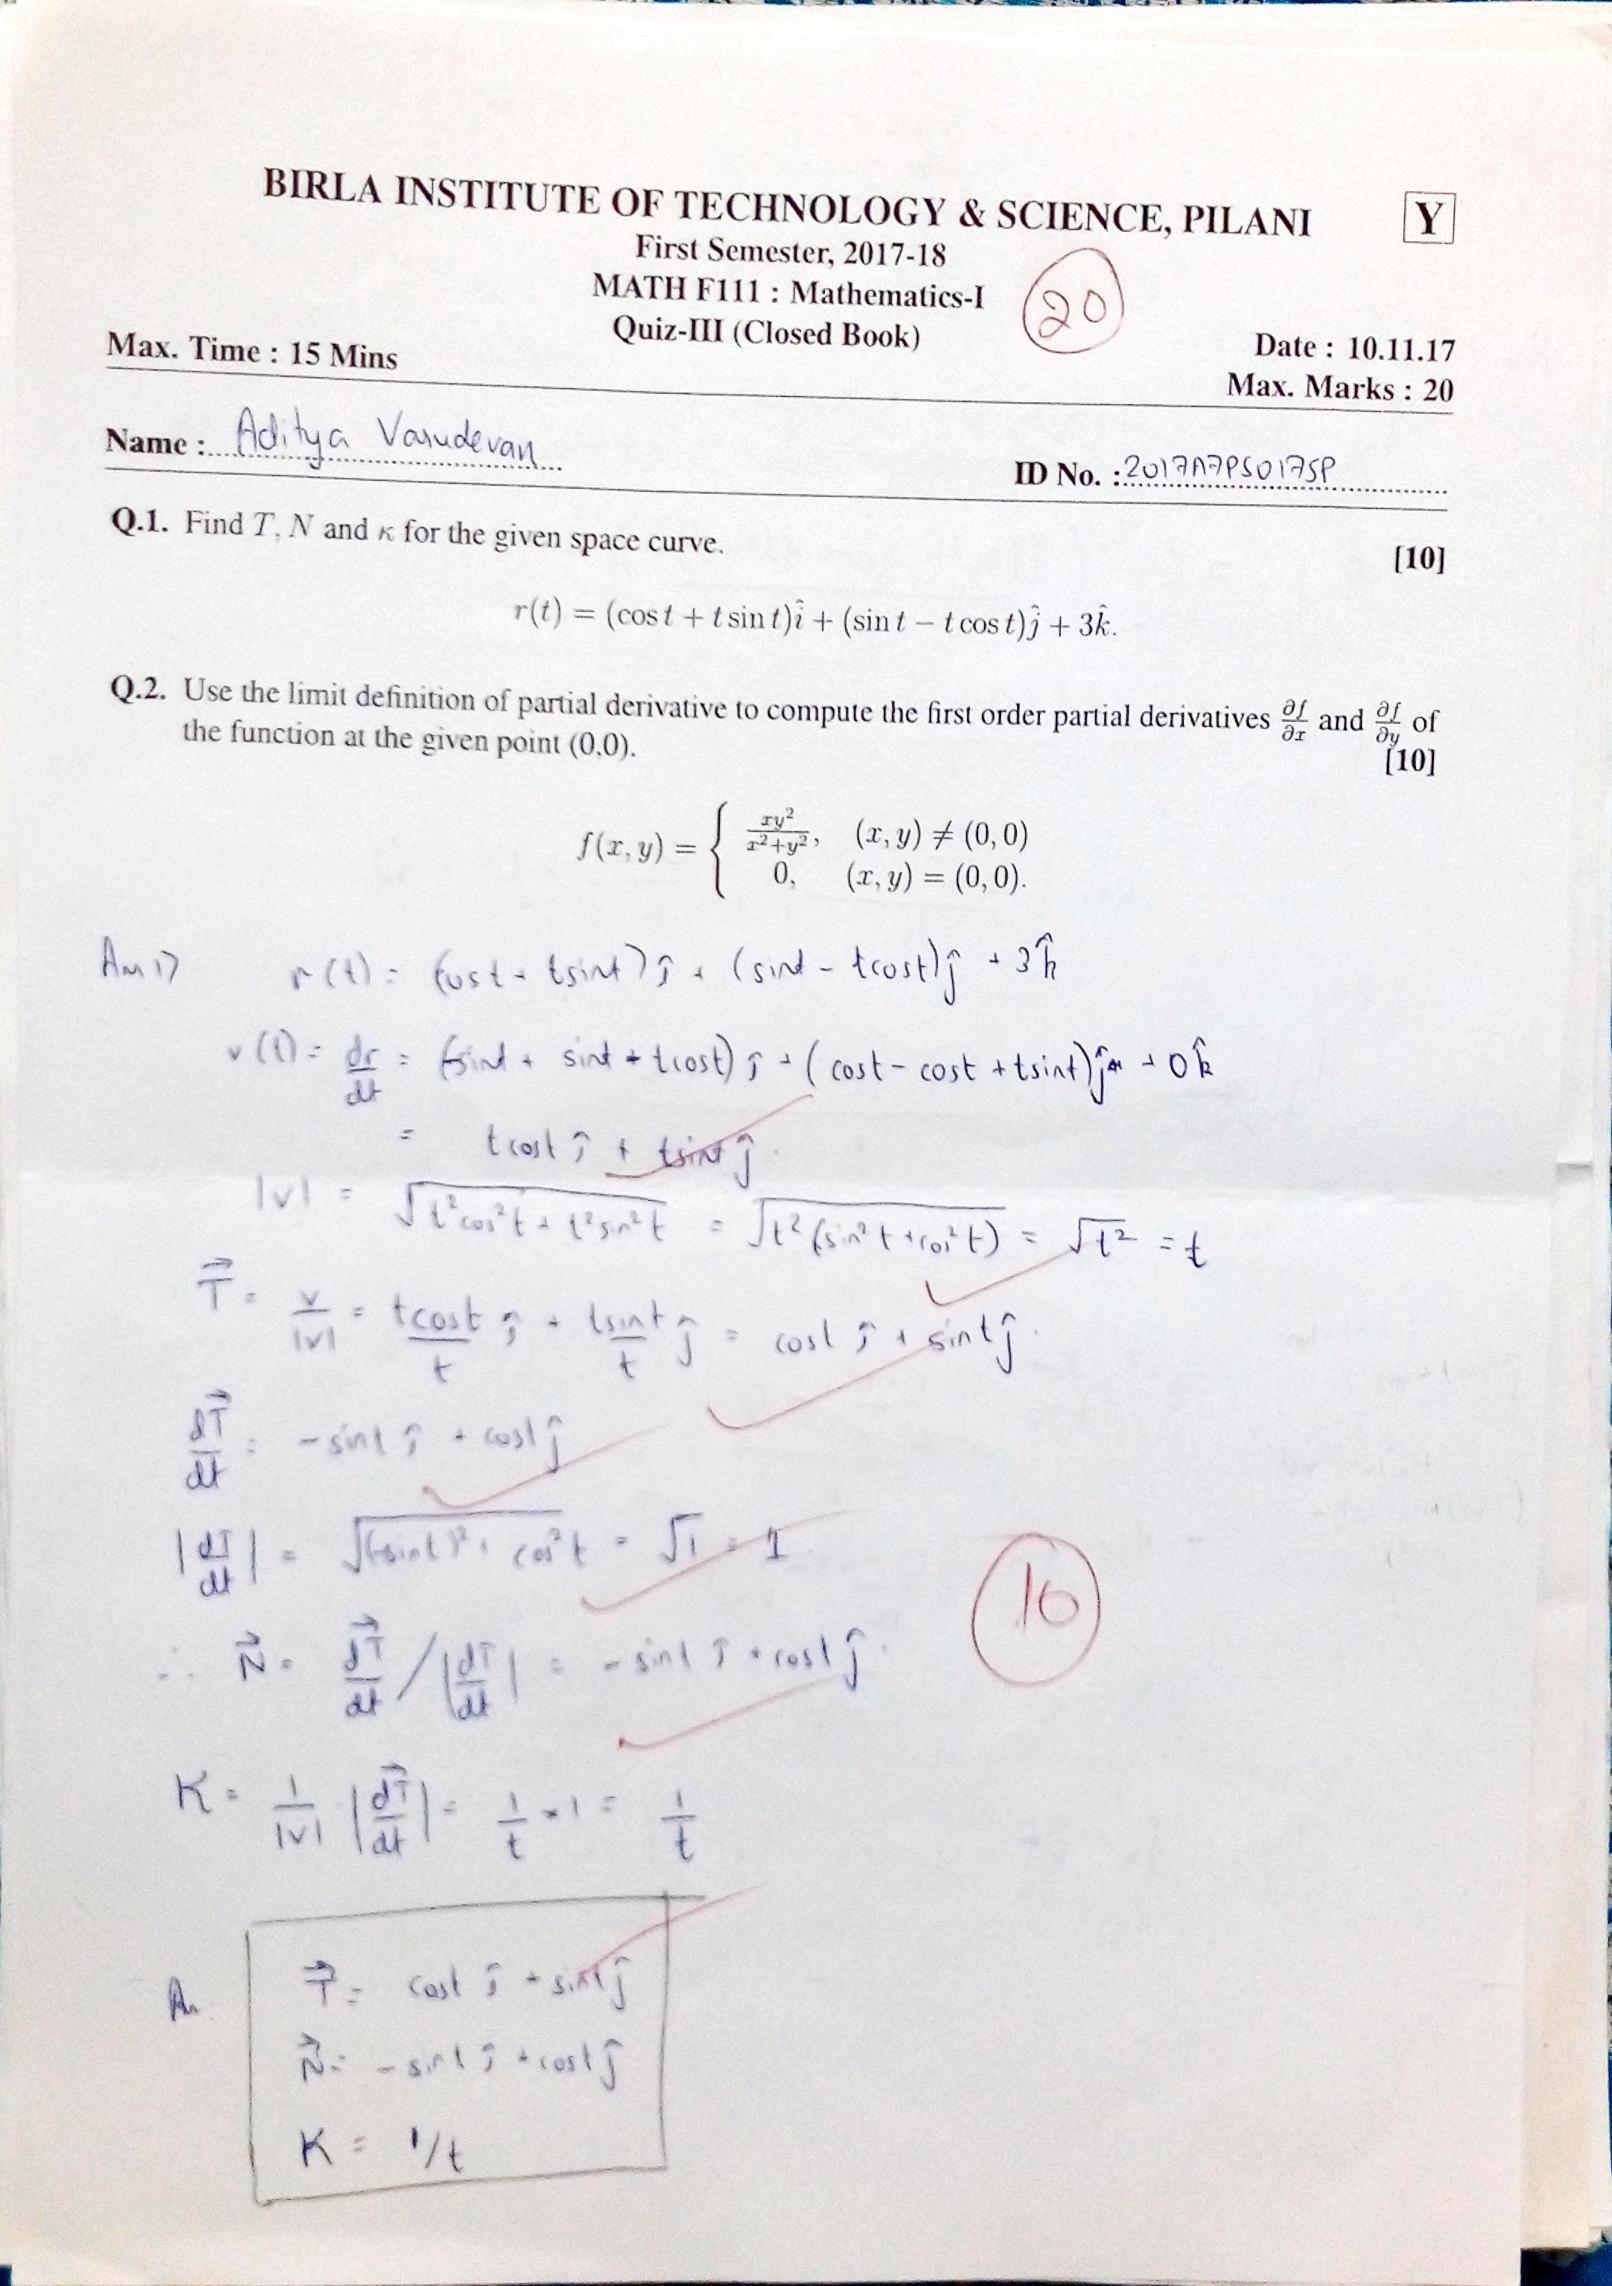 BIRLA INSTITUTE OF TECHNOLOGY & SCIENCE, PILANI Y
First Semester, 2017-18
MATH F111 : Mathematics-I
20
Quiz-III (Closed Book)
Max. Time : 15 Mins Date : 10.11.17
Max. Marks : 20
Name : Aditya Vasudevan ID No. : 2017A7PS0175P
Q.1. Find T, N and κ for the given space curve. [10]
r(t) = (cos t + t sin t)î + (sin t − t cos t)ĵ + 3k̂.
Q.2. Use the limit definition of partial derivative to compute the first order partial derivatives ∂f/∂x and ∂f/∂y of
the function at the given point (0,0). [10]
f(x, y) = { xy²/x²+y², (x, y) ≠ (0, 0)
0, (x, y) = (0, 0).
Ans 1) r(t) = (cost + tsint)î + (sint − tcost)ĵ + 3k̂
v(t) = dr/dt = (-sint + sint + tcost)î + (cost − cost + tsint)ĵ + 0k̂
= tcost î + tsint ĵ.
|v| = √t²cos²t + t²sin²t = √t²(sin²t + cos²t) = √t² = t
T⃗ = v/|v| = tcost/t î + tsint/t ĵ = cost î + sint ĵ.
dT⃗/dt = −sint î + cost ĵ
|dT⃗/dt| = √(-sint)² + cos²t = √1 = 1
10
∴ N⃗ = dT⃗/dt / |dT⃗/dt| = −sint î + cost ĵ.
K = 1/|v| |dT⃗/dt| = 1/t × 1 = 1/t
An T⃗ = cost î + sint ĵ
N⃗ = −sint î + cost ĵ
K = 1/t